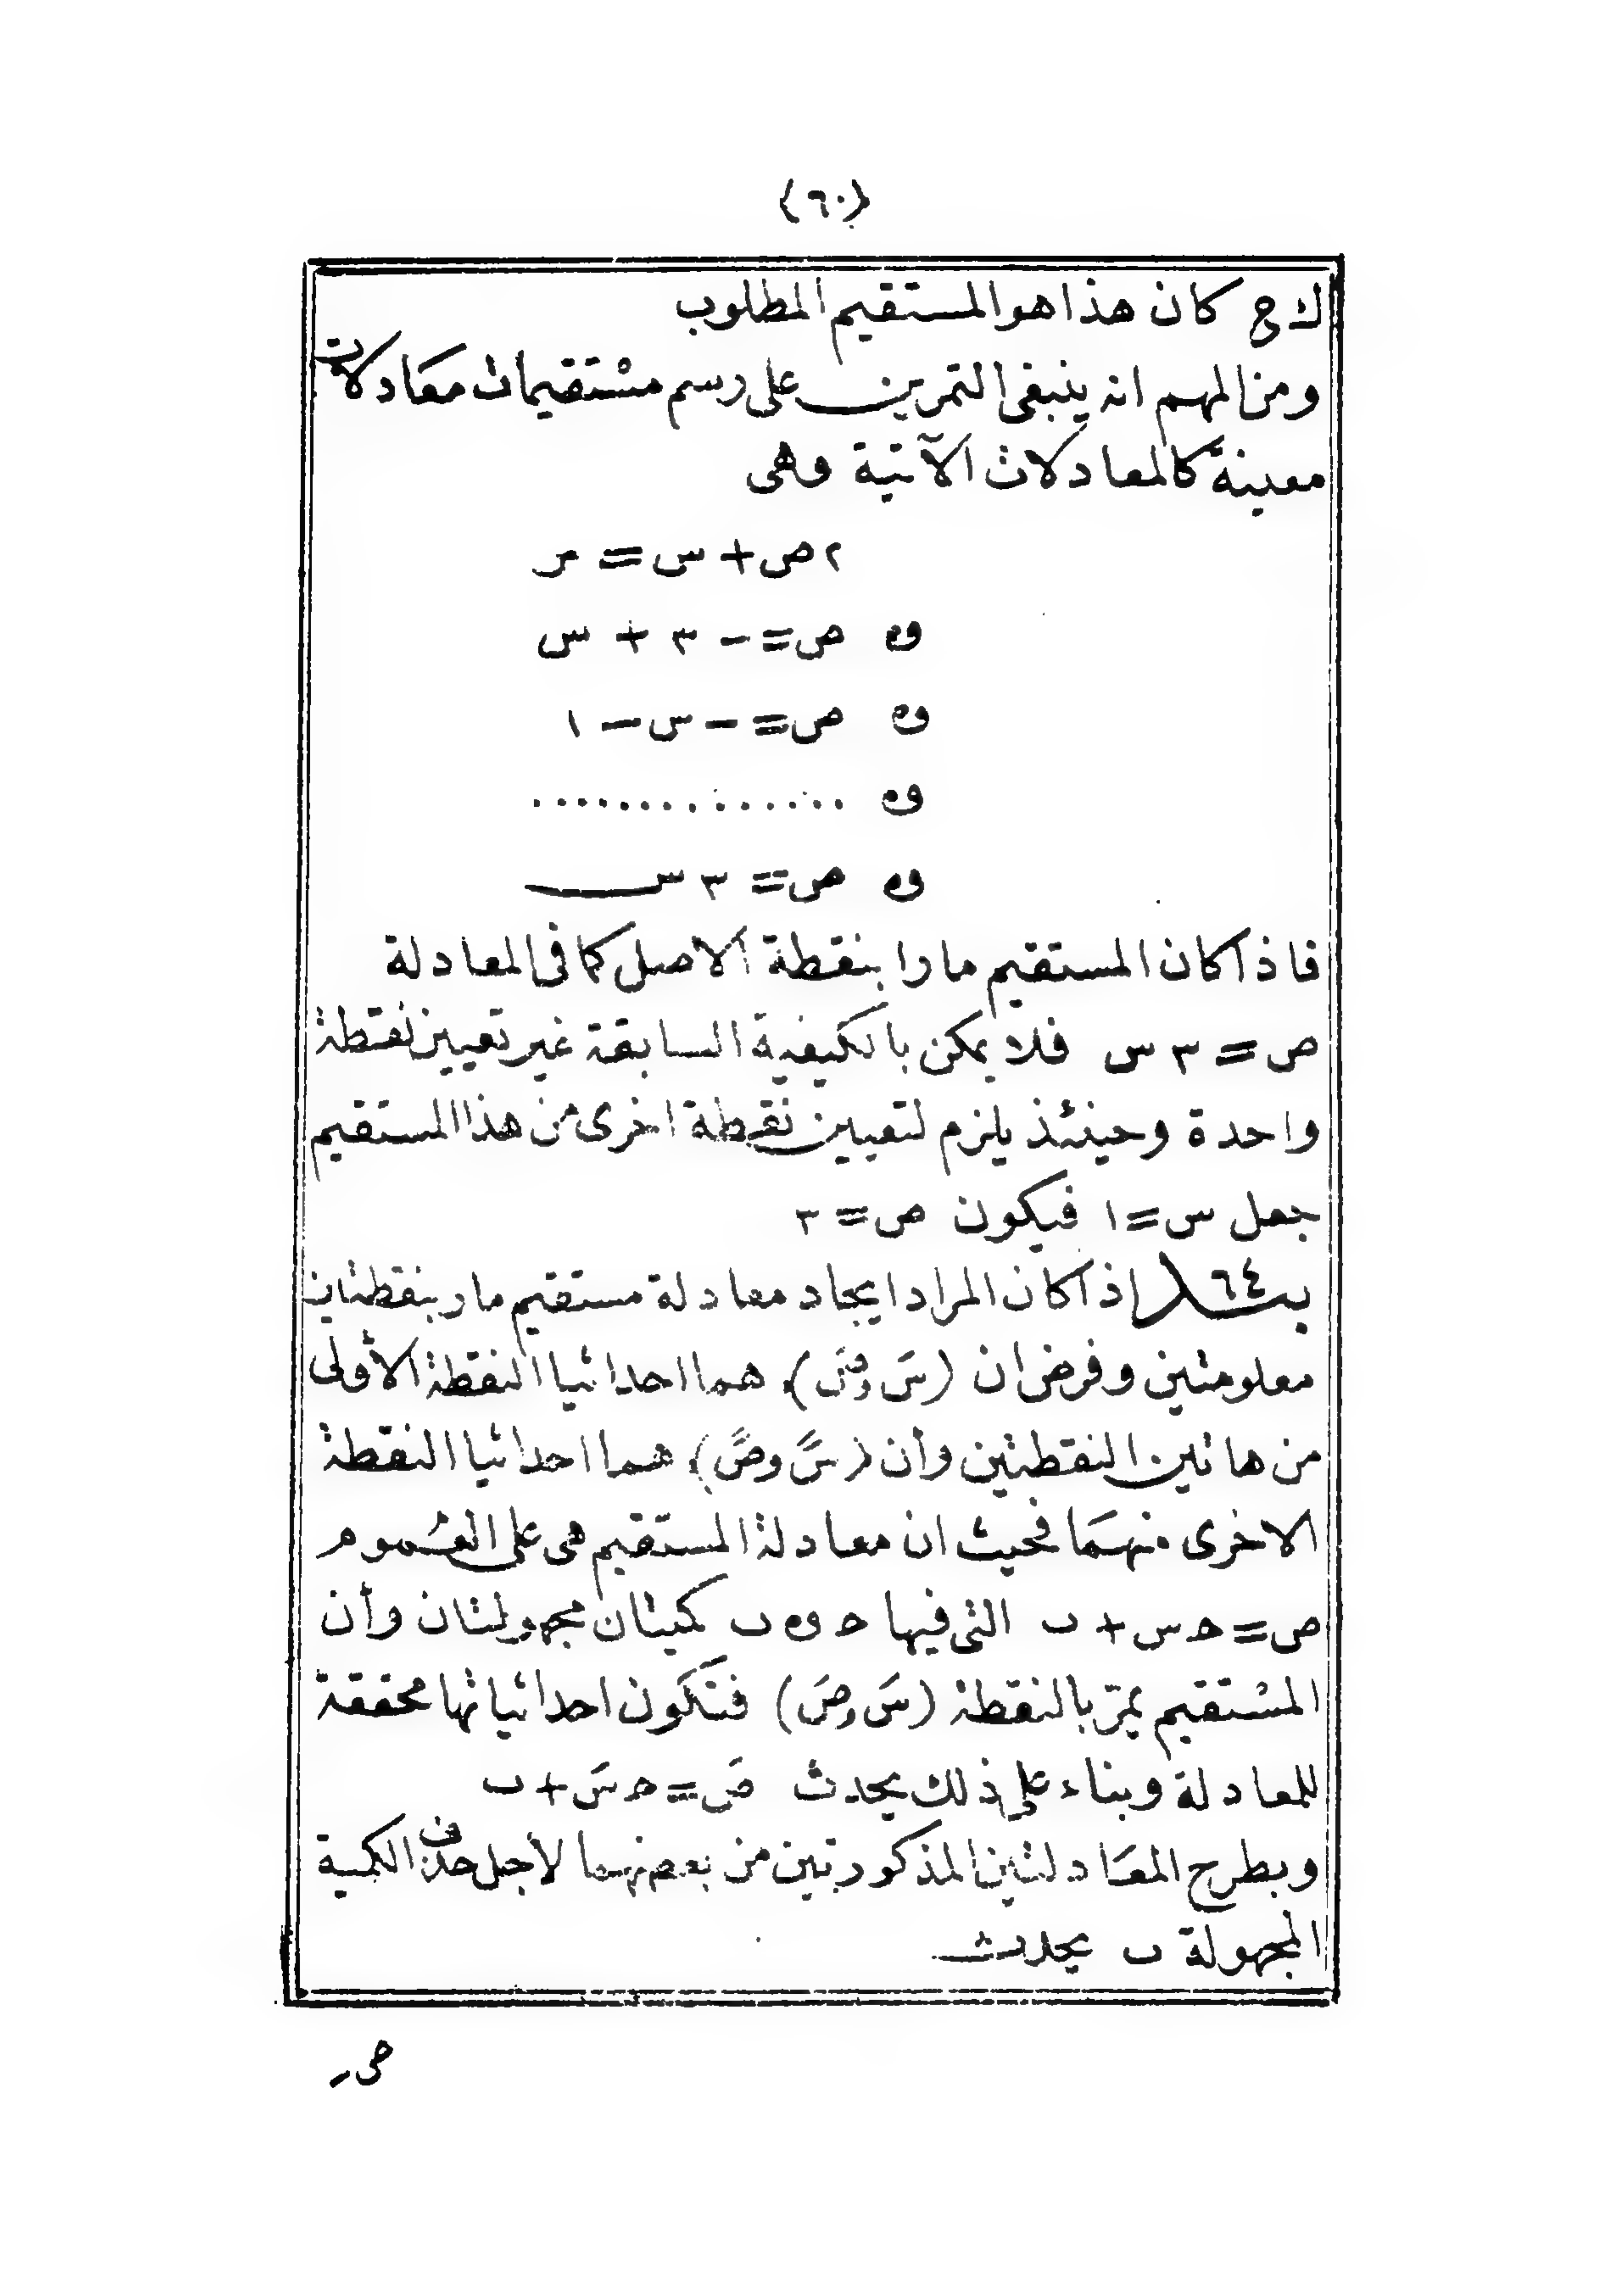 (٦٠)
ك ج كان هذا هو المستقيم المطلوب
ومن المهم انه ينبغى التمرين على رسم مستقيمات معادلات
معينة كالمعادلات الآتية وهى
٢ص + س =
و ص = - ٣ + س
و ص = - س - ١
و ..............
و ص = ٣ س
فاذا كان المستقيم مارا بنقطة الاصل كما فى المعادلة
ص = ٣ س فلا يمكن بالكيفية السابقة غير تعيين نقطة
واحدة وحينئذ يلزم لتعيين نقطة اخرى من هذا المستقيم
جعل س = ١ فيكون ص = ٣
بند ٦٤ اذا كان المراد ايجاد معادلة مستقيم مار بنقطتين
معلومتين وفرض ان (سَ وصَ) هما احداثيا النقطة الأولى
من هاتين النقطتين وأن (سً وصً) هما احداثيا النقطة
الاخرى منهما فحيث ان معادلة المستقيم هى على العموم
ص = حـ س + ب التى فيها حـ و ب كميتان مجهولتان وأن
المستقيم يمرّ بالنقطة (سَ وصَ) فتكون احداثياتها محققة
للمعادلة وبناء على ذلك يحدث صَ = حـ سَ + ب
وبطرح المعادلتين المذكورتين من بعضهما لأجل حذف الكمية
المجهولة ب يحدث
ص -